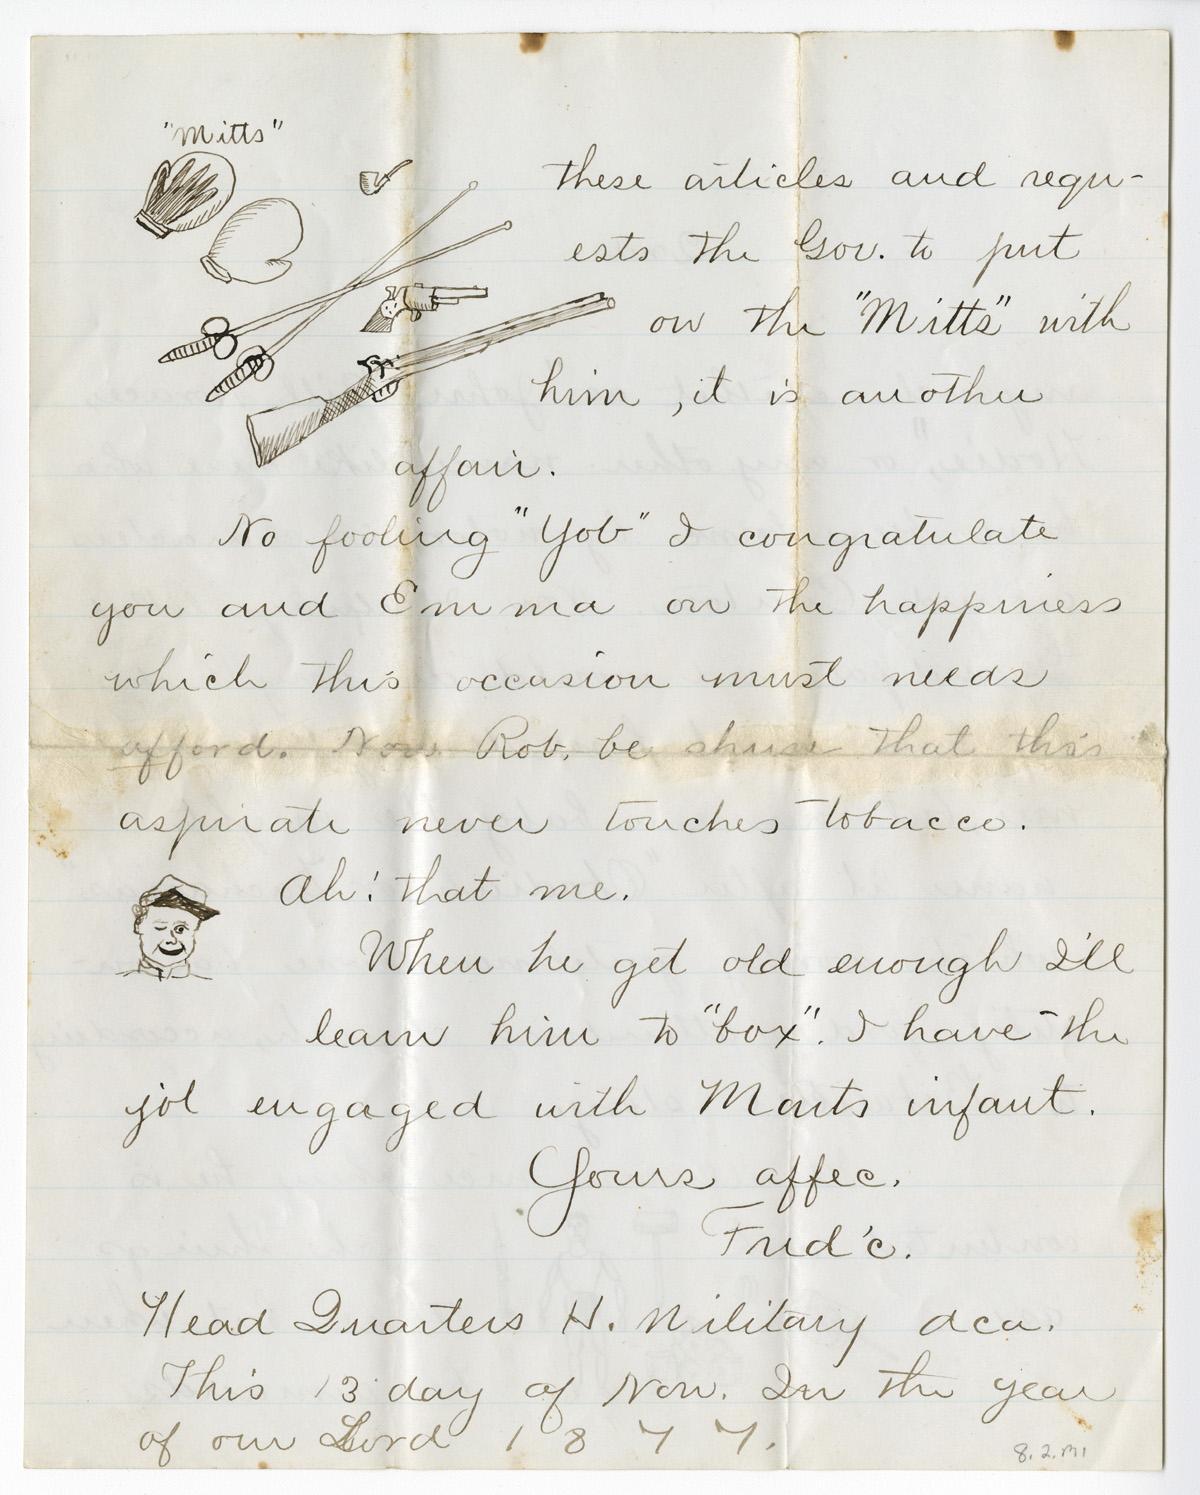 "Mitts"
these articles and requ-
ests the Gov. to put
on the "Mitts" with
him, it is another
affair.
No fooling "Yob" I congratulate
you and Emma on the happiness
which this occasion must needs
afford. Now Rob, be shure that this
aspirate never touches tobacco.
Ah! that me.
When he get old enough I'll
learn him to "box". I have the
job engaged with Marts infant.
Yours affec.
Fred'c.
Head Quarters H. Military Aca.
This 13 day of Nov. In the year
of our Lord 1877.
8.2.M1